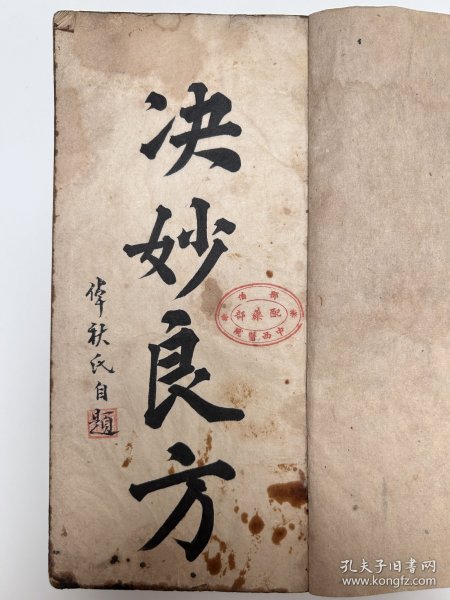 决妙良方
倬秋氏自題
配藥部
中西醫院
孔夫子旧书网
www.kongfz.com